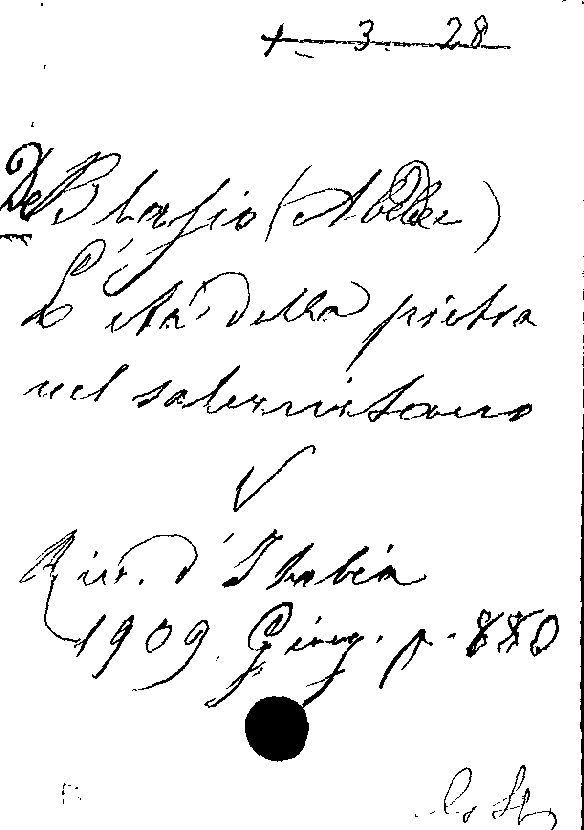 3 28
De Blasio (Abele)
L'età della pietra
nel salernitano
V
Riv. d'Italia
1909. Giug. p. 880